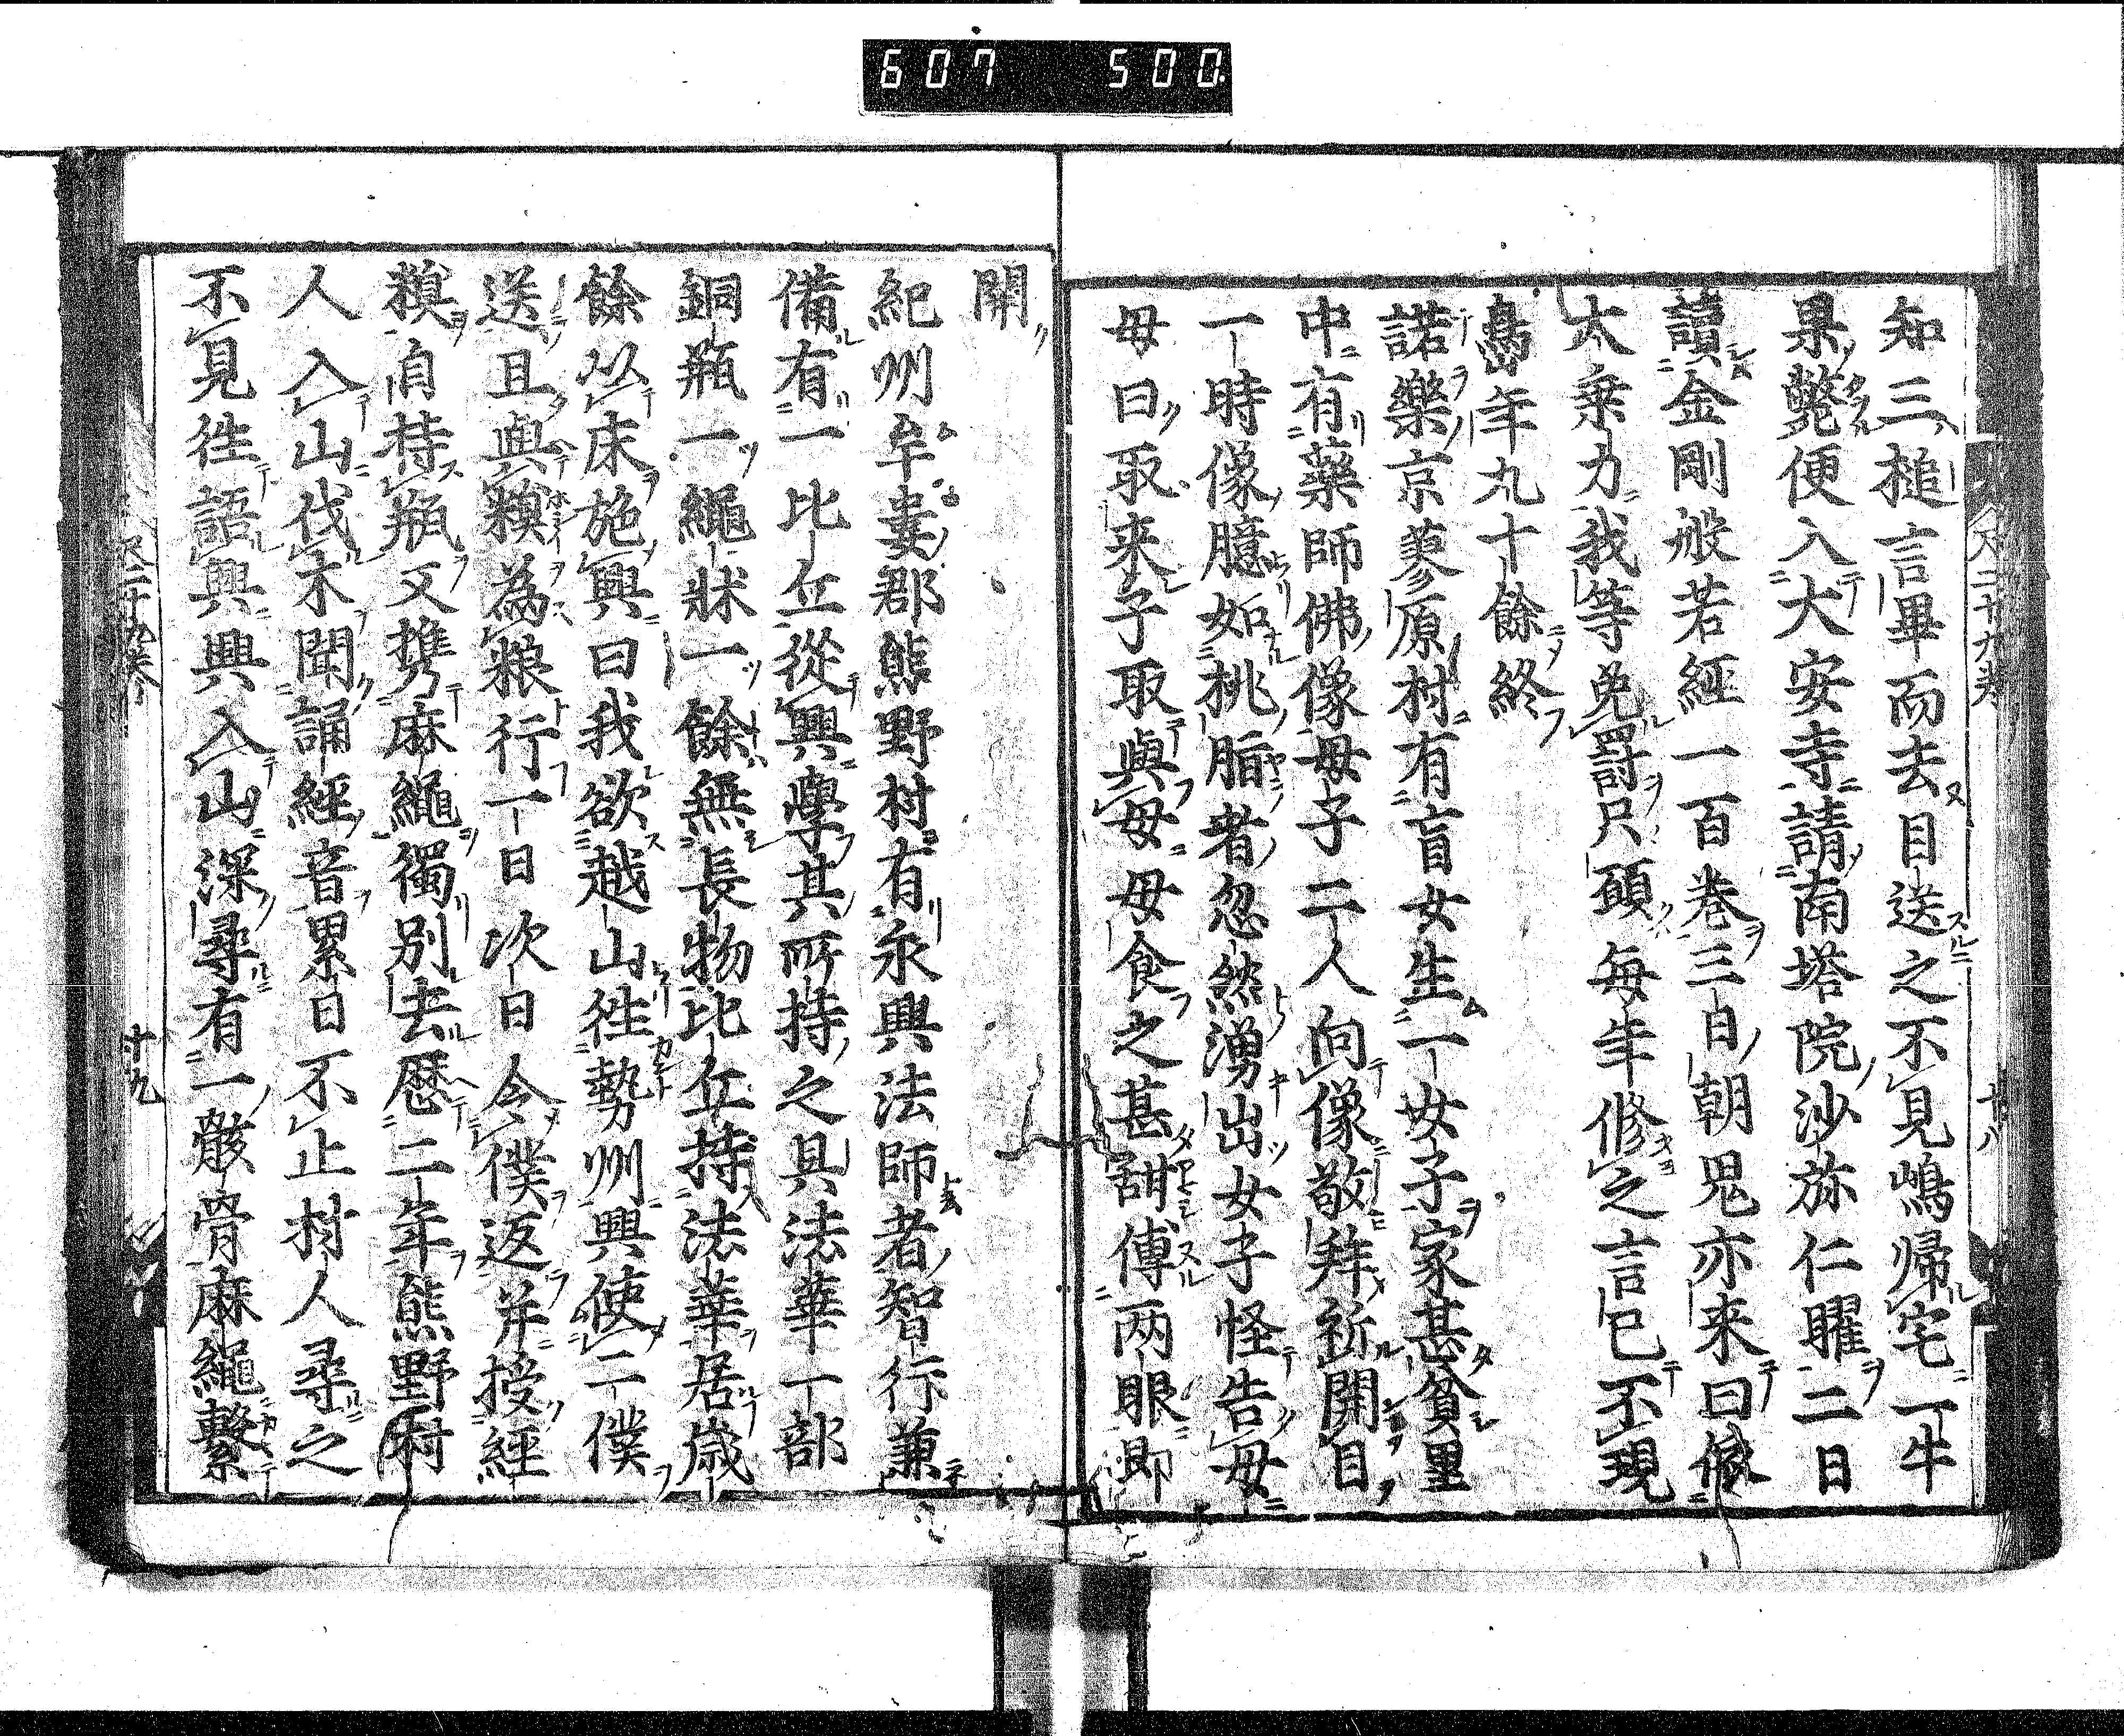 607 500
知三槌言畢而去目送之不見嶋帰宅一牛
果斃便入大安寺請南塔院沙弥仁耀二日
讀金剛般若經一百巻三日朝鬼亦来曰依
太乗力我等免罸只願毎年修之言已不現
嶋年九十餘終
諾樂京蓼原村有盲女生一女子家甚貧里
中有藥師佛像母子二人向像敬拜祈開目
一時像臆如桃脂者忽然湧出女子怪告母
母曰取来子取與母母食之甚甜傅両眼即
開
紀州牟婁郡熊野村有永興法師者智行兼
備有一比丘從興學其所持之具法華一部
銅瓶一繩牀一餘無長物比丘持法華居歳
餘以床施興曰我欲越山徃勢州興使二僕
送且與糗為粮行一日次日令僕返并授經
糗自持瓶又携麻繩獨別去暦二年熊野村
人入山伐木聞誦經音累日不止村人尋之
不見徃語興興入山深尋有一骸骨麻繩繫
十九